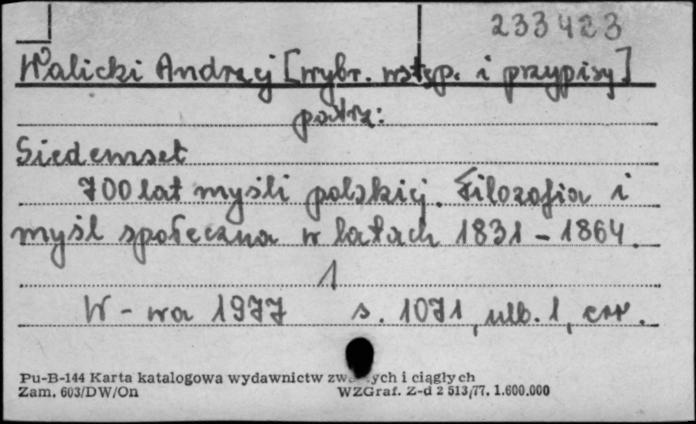 233423
Walicki Andrzej [wybr. wstęp. i przypisy]
patrz:
Siedemset
700 lat myśli polskiej. Filozofia i
myśl społeczna w latach 1831-1864.
1
W-wa 1977 s. 1071, nlb. 1, err.
Pu-B-144 Karta katalogowa wydawnictw i ciągłych
Zam. 603/DW/On WZGraf. Z-d 2 513/77. 1.600.000